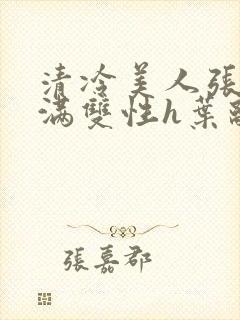 清冷美人張
滿雙性h葉
張嘉郡